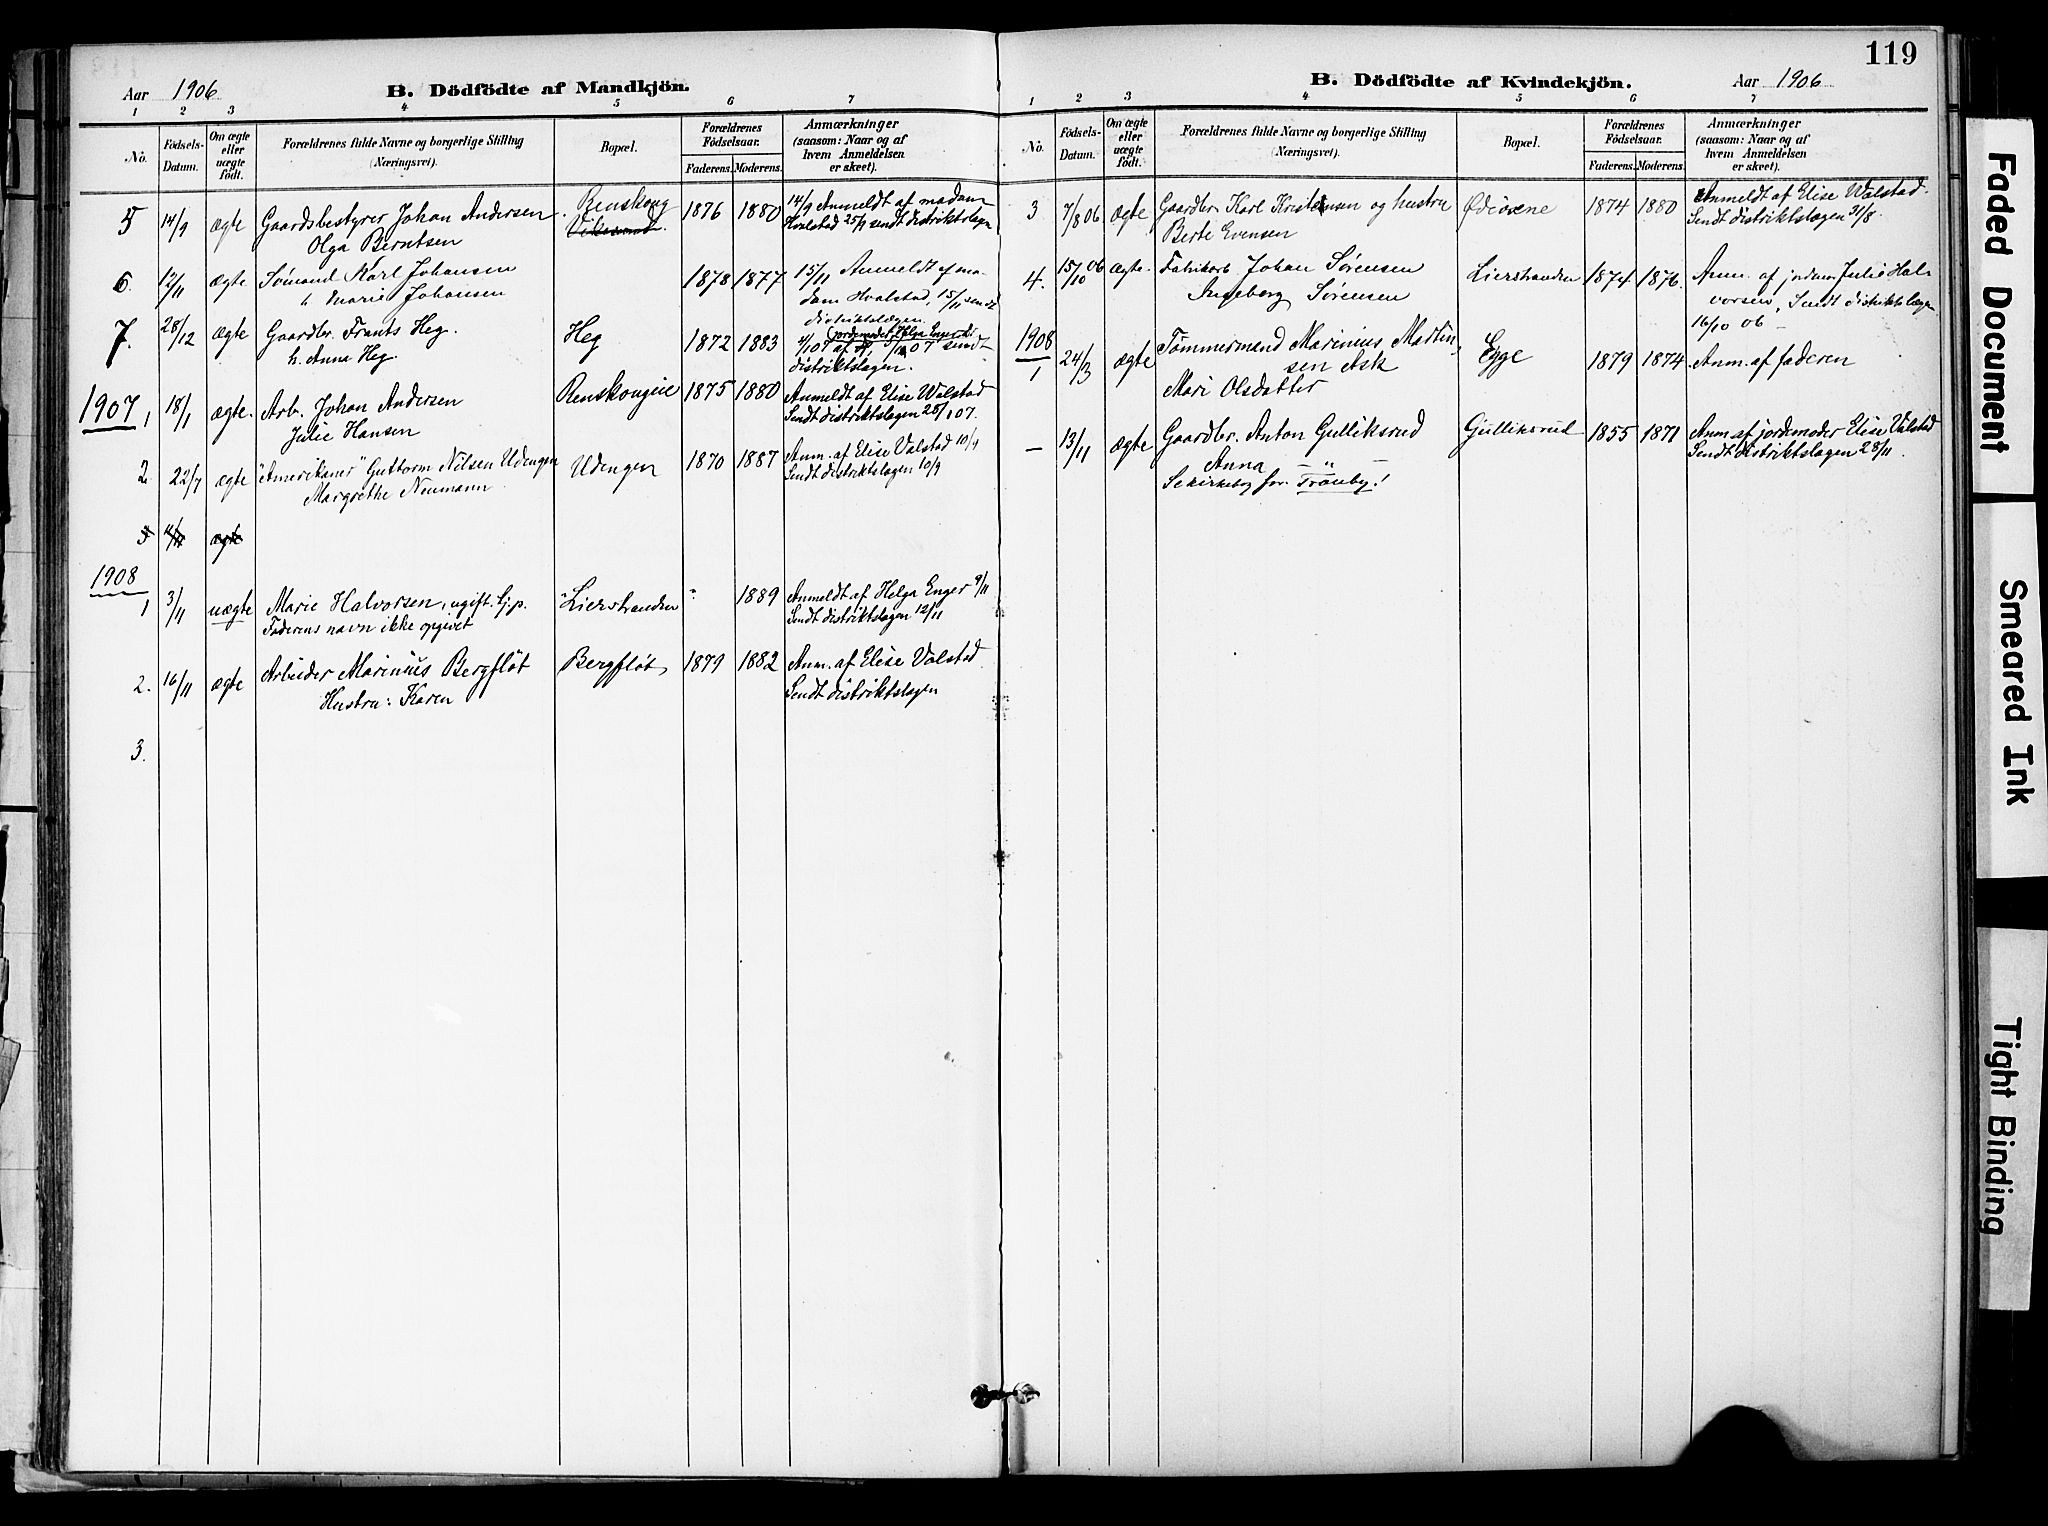 119
Aar 1906
B. Dödfödte af Mandkjön.
1 2 3 4 5 6 7
No.
Födsels-Datum.
Om ægte eller uægte födt.
Forældrenes fulde Navne og borgerlige Stilling
(Næringsvei).
Bopæl.
Forældrenes Födselsaar.
Faderens. Moderens.
Anmærkninger
(saasom: Naar og af
hvem Anmeldelsen
er skeet).
5 14/9 ægte Gaardsbestyrer Johan Andersen Renskoug 1876 1880 14/9 Anmeldt af madam
Olga Berntsen Hvalstad 25/9 sendt distriktslægen
6. 12/11 ægte Sömand Karl Johansen 1878 1877 15/11 Anmeldt af ma-
h. Marie Johansen dam Hvalstad, 15/11 sendt
distriktslægen
7. 28/12 ægte Gaardbr. Frants Heg. Heg 1872 1883 4/1 07 jordemoder Helga Enger
h. Anna Heg. 07 sendt
distriktslægen.
1907
1 18/1 ægte. Arb. Johan Andersen Renskougeie 1875 1880 Anmeldt af Elise Valstad
Julie Hansen Sendt distriktslægen 28/1 07.
2. 22/7 ægte "Amerikaner" Guttorm Nilsen Udengen Udengen 1870 1887 Anm. af Elise Valstad 10/9
Margrethe Neumann Sendt distriktslægen 10/9
3 ægte
1908
1 3/11 uægte Marie Halvorsen, ugift tj.p. Lierstranden " 1889 Anmeldt af Helga Enger 9/11
Faderens navn ikke opgivet Sendt distriktslægen 12/11
2. 16/11 ægte Arbeider Marinius Bergflöt Bergflöt 1879 1882 Anm. af Elise Valstad
Hustru: Karen Sendt distriktslægen
3.
B. Dödfödte af Kvindekjön.
Aar 1906
1 2 3 4 5 6 7
No.
Födsels-Datum.
Om ægte eller uægte födt.
Forældrenes fulde Navne og borgerlige Stilling
(Næringsvei).
Bopæl.
Forældrenes Födselsaar.
Faderens. Moderens.
Anmærkninger
(saasom: Naar og af
hvem Anmeldelsen
er skeet).
3 7/8 06 ægte Gaardbr. Karl Kristensen og hustru 1874 1880 Anmeldt af Elise Valstad
Berte Evensen Sendt distriktslægen 31/8.
4. 15/10 06 ægte. Fabrikarb. Johan Sørensen Lierstranden 1874 1876. Anm. af jordm. Julie Hal-
Ingeborg Sørensen vorsen, Sendt distriktslægen
16/10 06
1908
1 24/3 ægte Tömmermand Marinius Martin- Egge 1879 1874 Anm. af faderen
sen Ask
Mari Olsdatter
— 13/11 ægte Gaardbr. Anton Gulliksrud Gulliksrud 1855 1871 Anm. af jordemoder Elise Valstad
Anna — " — Sendt distriktslægen 28/11
Se kirkebog for Tranby!
Faded Document
Smeared Ink
Tight Binding